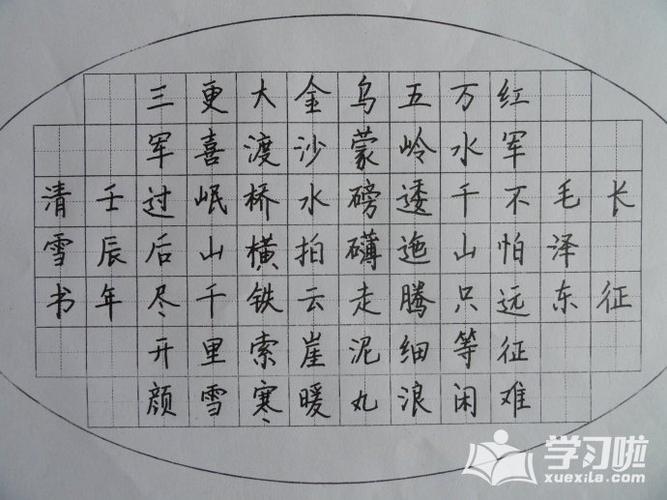 长征
毛泽东
红军不怕远征难
万水千山只等闲
五岭逶迤腾细浪
乌蒙磅礴走泥丸
金沙水拍云崖暖
大渡桥横铁索寒
更喜岷山千里雪
三军过后尽开颜
壬辰年
清雪书
学习啦
xuexila.com